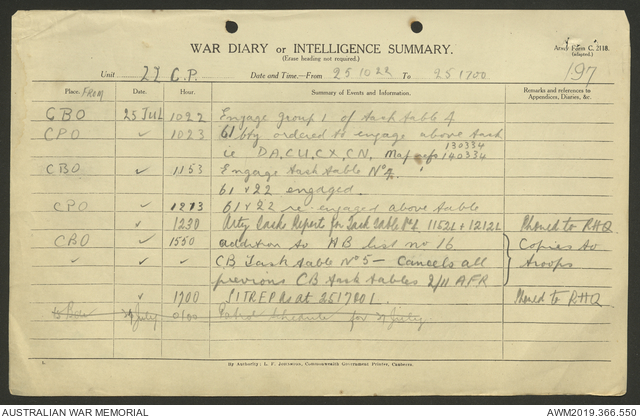 WAR DIARY or INTELLIGENCE SUMMARY.
(Erase heading not required.)
Army Form C. 2118.
(adapted.)
197
Unit 22 C.P. Date and Time—From 251022 To 251700
Place. From Date. Hour. Summary of Events and Information. Remarks and references to Appendices, Diaries, &c.
CBO 25 JUL 1022 Engage group 1 of task table 4
CPO ✓ 1023 61 bty ordered to engage above task
ie DA, CU, CX, CN, Map refs 130334 140334
CBO ✓ 1153 Engage task table No 4.
61 & 22 engaged.
CPO ✓ 1213 61 & 22 re-engaged above table
✓ 1230 Arty Task Report for Task Table No 4 1152L + 1212L Phoned to RHQ
CBO ✓ 1550 addition to HB list no 16 Copies to
✓ ✓ CB Task table No 5 — Cancels all troops
previous CB task tables 2/11 AFR
✓ 1700 SITREP as at 251700L. Phoned to RHQ
July 0100 for July
A. By Authority: L. F. Johnston, Commonwealth Government Printer, Canberra.
AUSTRALIAN WAR MEMORIAL
AWM2019.366.550